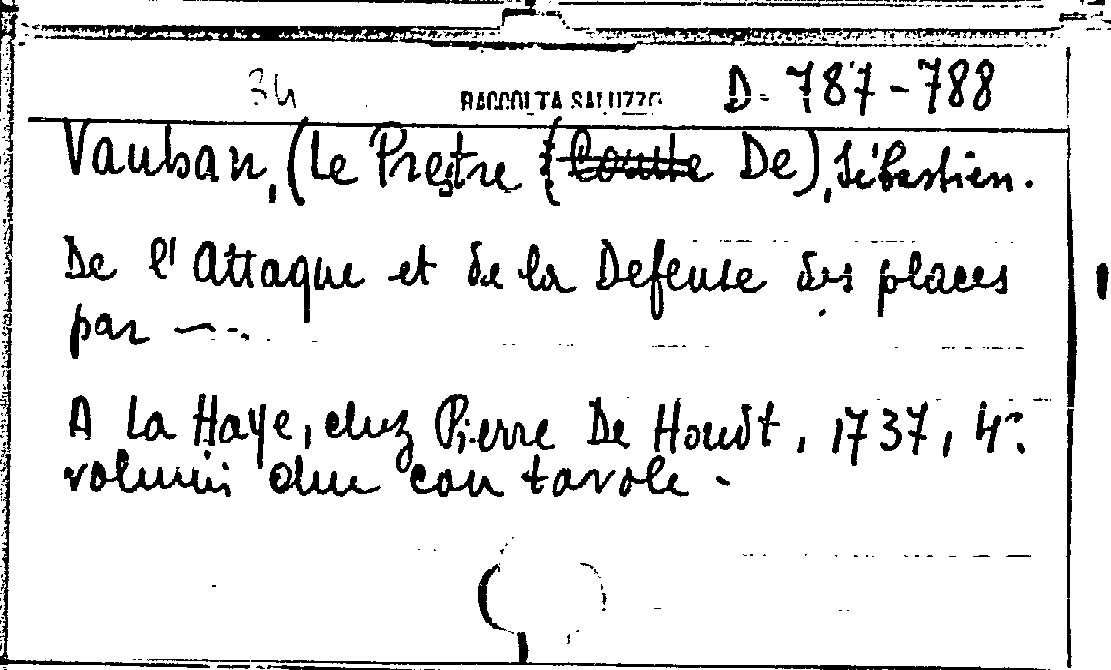 34 RACCOLTA SALUZZO D. 787-788
Vauban, (Le Prestre (Comte De), Sébastien.
De l'Attaque et de la Defense des places
par ~--.
A La Haye, chez Pierre De Houdt, 1737, 4º.
volumi due con tavole.